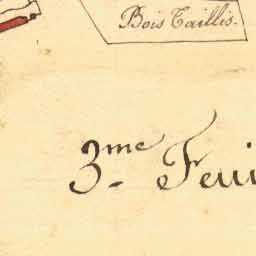 Bois Taillis.
3me Feui